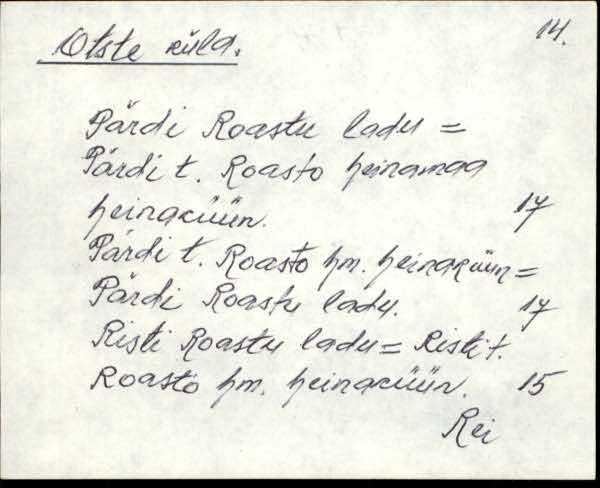 14.
Otste küla.
Pärdi Roastu ladu =
Pärdi t. Roasto heinamaa
heinaküün. 17
Pärdi t. Roasto hm. heinaküün =
Pärdi Roastu ladu. 17
Risti Roastu ladu = Risti t.
Roasto hm. heinaküün. 15
Rei